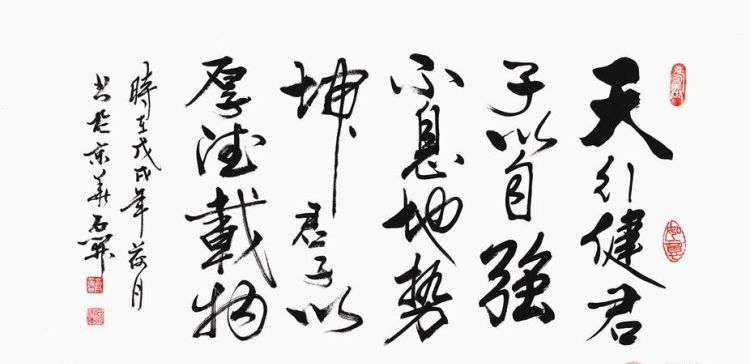 天行健君
子以自強
不息地勢
坤君子以
厚德載物
時在戊戌年荷月
书於京華石開
如意